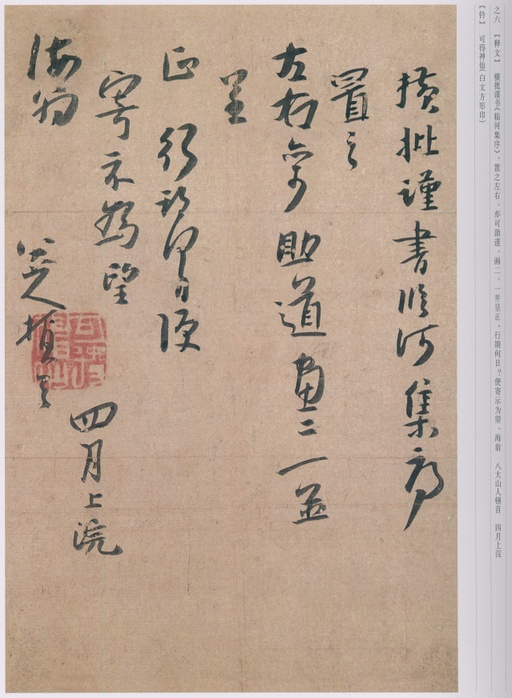 之六 【释文】 横批谨书《临河集序》，置之左右，亦可助道。画二，一并呈正。行期何日？便寄示为望。海翁 八大山人顿首 四月上浣
【钤】 可得神仙（白文方形印）
横批谨書临河集序
置之
左右亦助道畫二一並
呈
正行期何日便
寄示為望
海翁
八大山人頓首
四月上浣
可得神仙